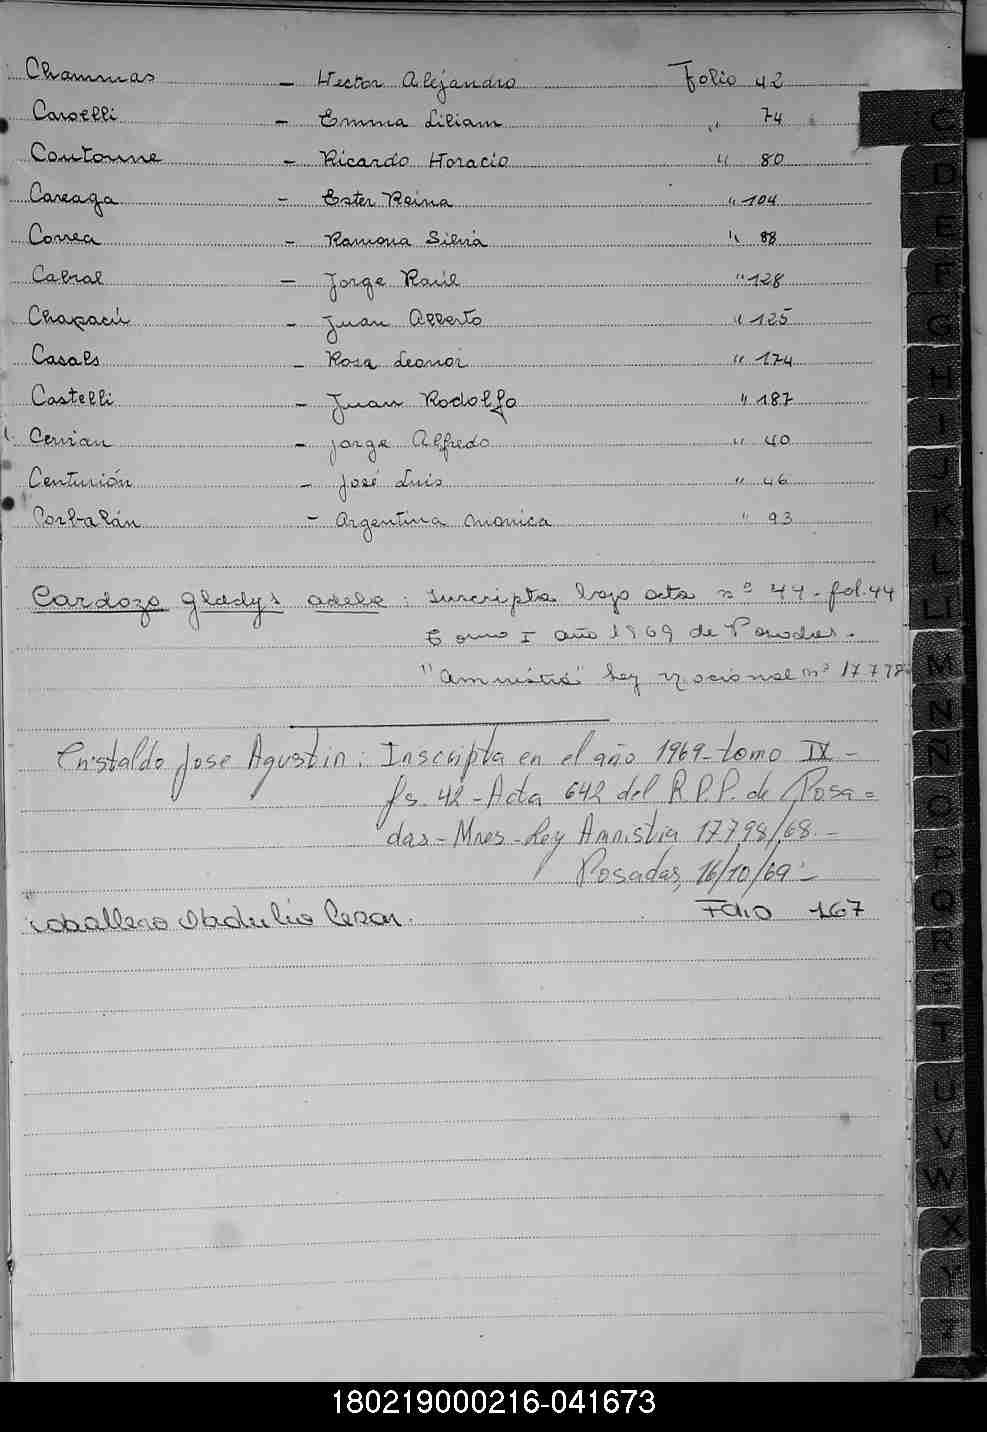 Chammas - Hector Alejandro Folio 42
Caroelli - Emma Liliam " 74
Coutonne - Ricardo Horacio " 80
Careaga - Ester Reina " 104
Correa - Ramona Silvia " 88
Cabral - Jorge Raúl " 128
Chapacú - Juan Alberto " 125
Casals - Rosa Leonor " 174
Castelli - Juan Rodolfo " 187
Cernian - Jorge Alfredo " 40
Centurión - José Luis " 46
Corbalán - Argentina Monica " 93
Cardozo Gladys adela : Inscripta bajo acta nº 44 - fol. 44
Tomo I año 1969 de Posadas.
"Amnistia" Ley nacional nº 17778
Cristaldo Jose Agustin : Inscripta en el año 1969 - tomo IX -
fs. 42 - Acta 642 del R.P.P. de Posa =
das - Mnes - Ley Amnistia 17798/68. -
Posadas, 16/10/69 -
Caballero Obdulio Cesar. Folio 167
C
D
E
F
G
H
I
J
K
L
LL
M
N
Ñ
O
P
Q
R
S
T
U
V
W
X
Y
Z
180219000216-041673